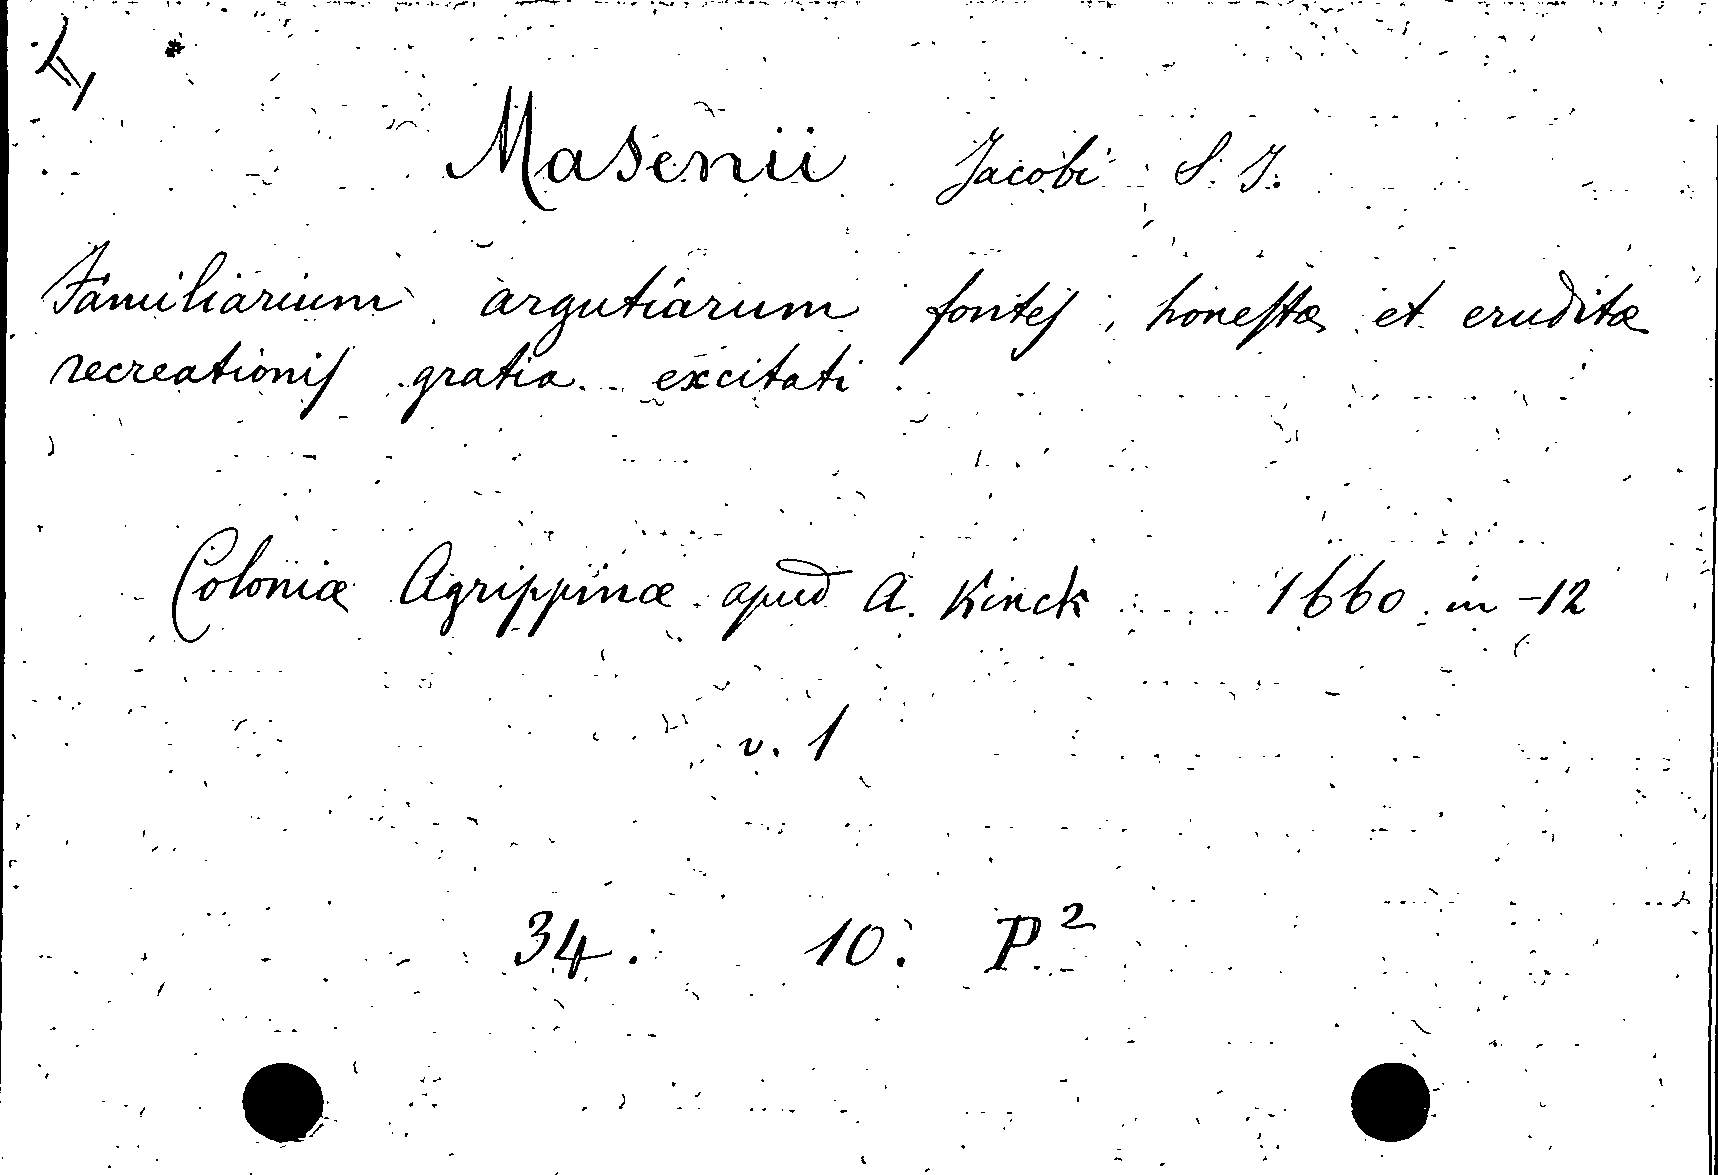 Masenii Jacobi S. J.
Familiarium argutiarum fontes, honestæ et eruditæ
recreationis gratia excitati.
Coloniæ Agrippinæ apud A. Kinck 1660 in-12
v. 1
34. 10. P²